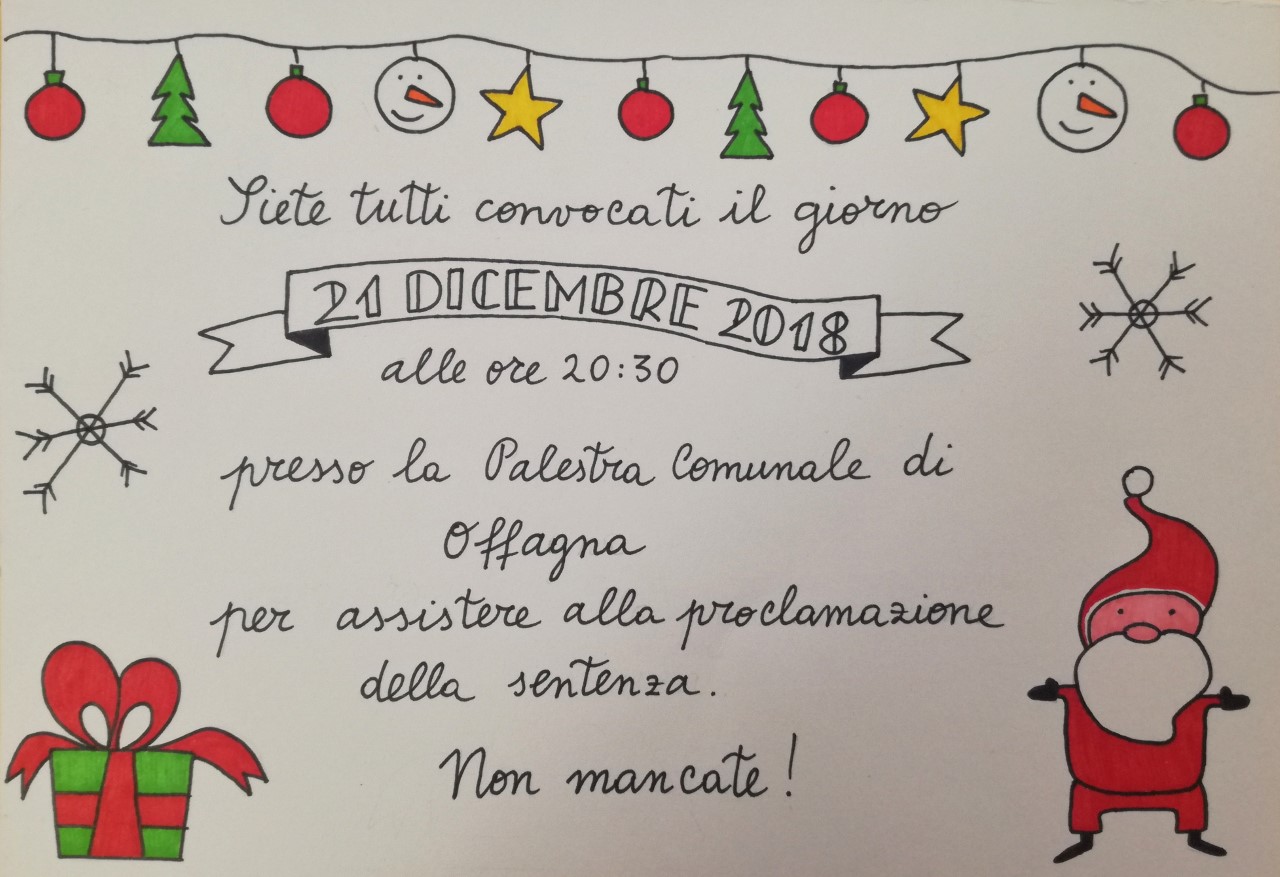 Siete tutti convocati il giorno
21 DICEMBRE 2018
alle ore 20:30
presso la Palestra Comunale di
Offagna
per assistere alla proclamazione
della sentenza.
Non mancate!